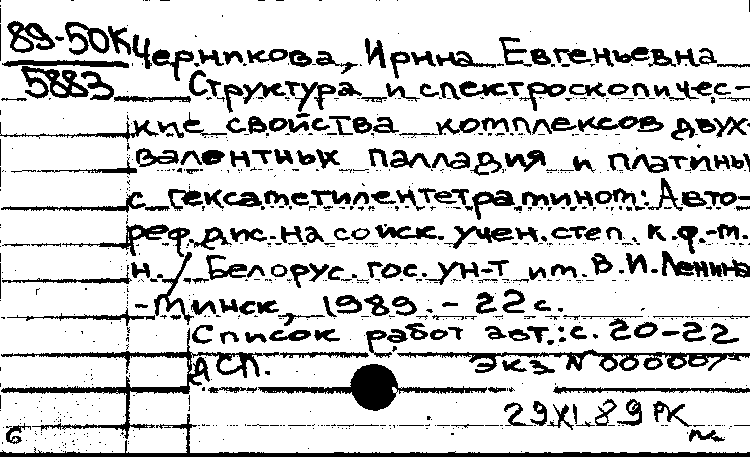 89-50К Черникова, Ирина Евгеньевна
5883 Структура и спектроскопичес-
кие свойства комплексов двух-
валентных палладия и платины
с гексаметилентетрамином: Авто-
реф. дис. на соиск. учен. степ. к.ф.-м.
н. / Белорус. гос. ун-т им. В.И. Ленина
- Минск, 1989. - 22 с.
Список работ авт.: с. 20-22
ДСП. Экз N 000007
29.XI.89 РК
6